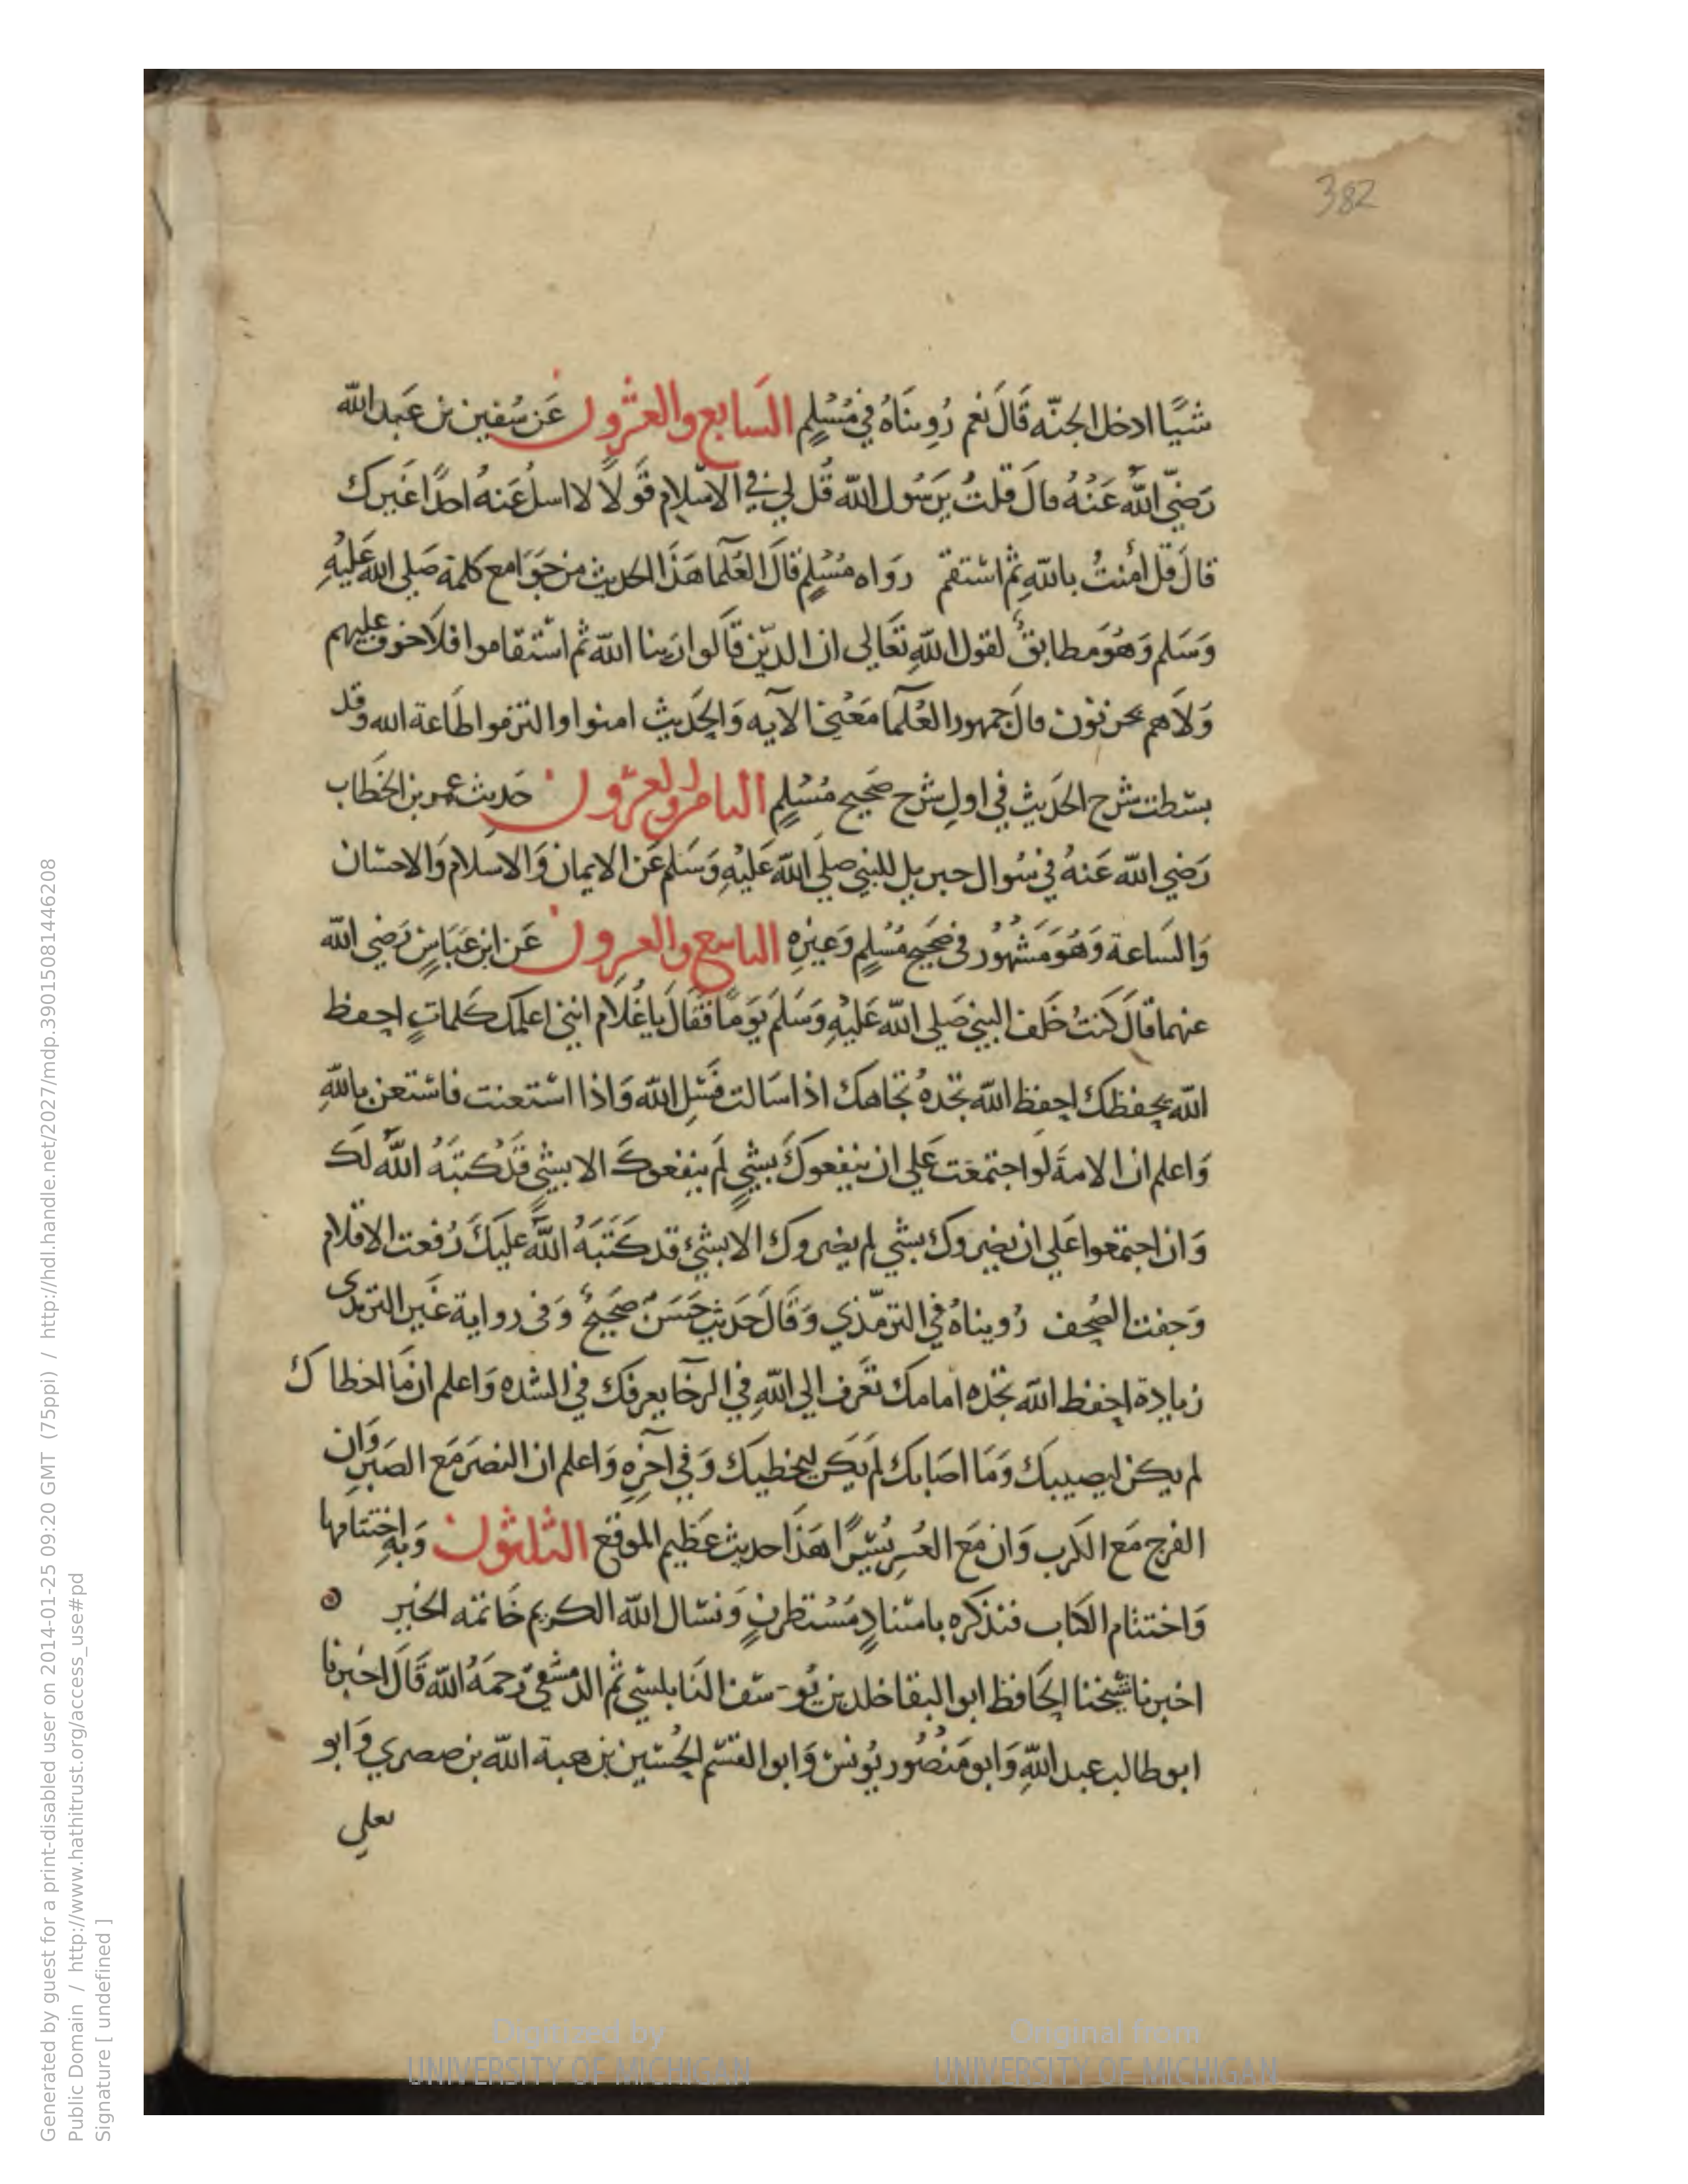 382
شيًا ادخل الجنّه قَالَ نعم رُوِينَاهُ في مُسْلِمٍ السَابع والعشرون عَن سُفين بن عَبد الله
رَضيَ اللهُ عَنْهُ قالَ قلتُ يَرَسُول الله قُل لي في الاسْلام قَولاً لا اسلُ عَنهُ احدًا غَيرك
قالَ قل اٰمنتُ بالله ثم اسْتقم رَوَاه مُسْلِمٍ قالَ العُلَمآ هَذَا الحَديث من جَوَامع كلمة صَلي الله عَليْهِ
وَسَلم وَهُوَ مطابقٌ لقول اللهِ تعَالى ان الذين قَالوا رَبنا الله ثم اسْتقاموا فلا خوف عليهم
وَلاَ هم يحزنون قالَ جمهور العُلمآ مَعْنى الآيه وَالحَديث امنوا والتزموا طَاعة الله وقد
بسَطت شرح الحَديث في اول شرح صَحيح مُسْلِمٍ الثامن والعشرون حَديث عمر بن الخطاب
رَضي الله عَنهُ في سُوال جبريل للنبي صلي الله عَليْهِ وَسَلم عَن الايمان وَالاسلام وَالاحسَان
وَالسَاعة وَهُوَ مَشهُور في صَحيح مُسْلِمٍ وَغيرِهِ التاسع والعشرون عَن ابن عَبَاسٍ رَضي الله
عنهما قالَ كنتُ خَلف النبي صَلي الله عَليْهِ وَسَلَم يَومًا فقَالَ يا غُلَام انني اعلمك كلماتٍ احفظ
الله يحفظك احفظ الله تجدهُ تجاهك اذا سَالت فسَلِ الله وَاذا اسْتعنت فاسْتعن بالله
وَاعلم ان الامةَ لو اجتمعَت عَلي ان ينفعوكَ بشيٍ لم ينفعوكَ الا بشيٍ قَدْ كتبَهُ اللهُ لكَ
وَان اجتمعوا عَلي ان يضروك بشي لم يضروك الا بشيٍ قد كَتَبَهُ اللهُ عَليكَ رُفعت الاقلام
وَجفت الصُحف رُويناهُ في الترمذي وَقَالَ حَديث حَسَنٌ صَحيحٌ وَفي رواية غَير الترمذى
زيادة احفظ الله تجده امامك تعَرف الي اللهِ في الرخآ يعرفك في الشده وَاعلم ان مَا اخطاك
لم يكن ليصيبك وَمَا اصَابك لم يَكن ليخطيك وَفي آخِرِهِ وَاعلم ان النصَر مَع الصَبر وَان
الفرج مَع الكرب وَان مَع العُسرِ يُسْرًا هَذَا حديث عَظيم الموقع الثلثون وَبِهِ اختتامها
وَاختتام الكتاب فنذكره باسْنادٍ مُسْتطرفٍ وَنسَال الله الكريم خَاتمه الخير
اخبرنا شيخنا الحَافظ ابو البقا خلد بن يُوسف النَابلسي ثم الدمشقي رَحمَهُ الله قَالَ اخبرنا
ابو طالب عبد اللهِ وَابو مَنصُور يُونسُ وَابو القسم الحُسَين بن هبة الله بن صصري وَابو
يعلي
Generated by guest for a print-disabled user on 2014-01-25 09:20 GMT (75ppi) / http://hdl.handle.net/2027/mdp.39015081446208
Public Domain / http://www.hathitrust.org/access_use#pd
Signature [ undefined ]
Digitized by
UNIVERSITY OF MICHIGAN
Original from
UNIVERSITY OF MICHIGAN